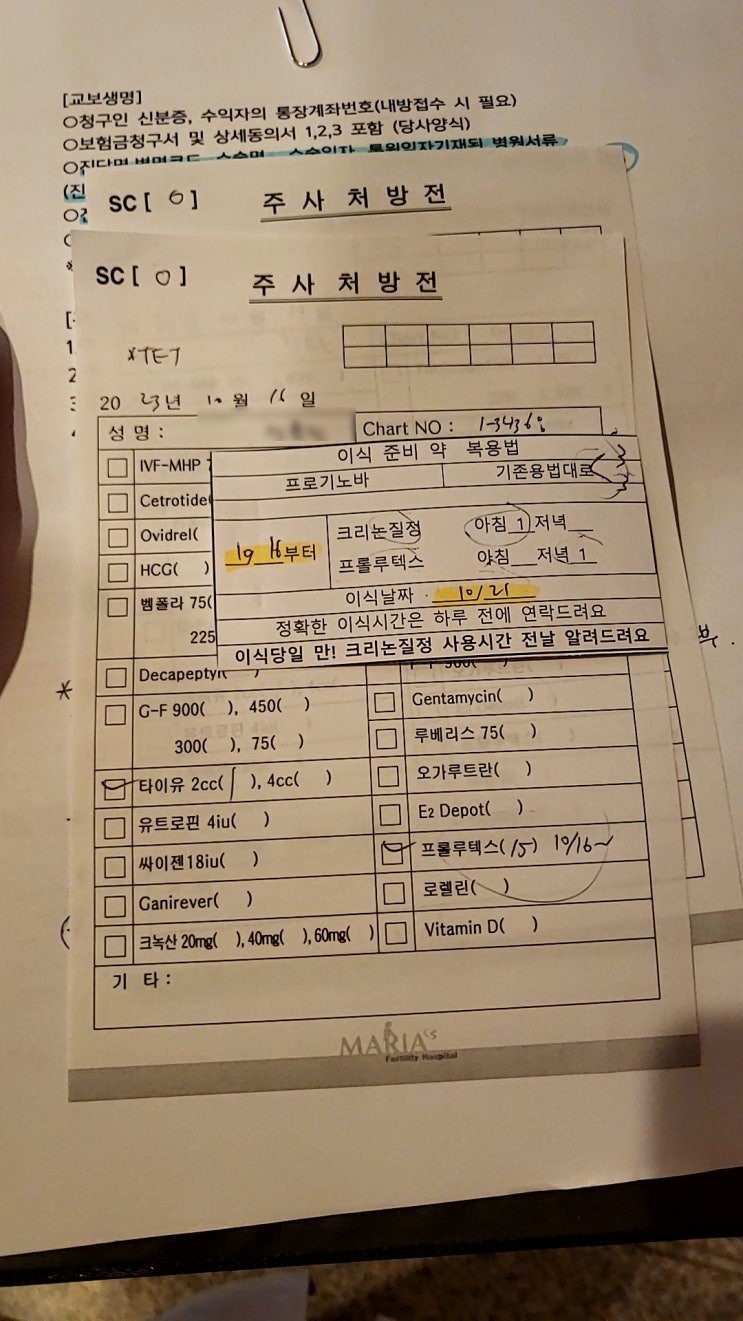 [교보생명]
○청구인 신분증, 수익자의 통장계좌번호(내방접수 시 필요)
○보험금청구서 및 상세동의서 1,2,3 포함 (당사양식)
○진단명,병명코드, 수술명, 수술일자, 통원일자기재된 병원서류
(진
SC [ 0 ] 주 사 처 방 전
SC [ 0 ] 주 사 처 방 전
2023년 10월 16일
성 명 : Chart NO :
이식 준비 약 복용법
프로기노바 기존용법대로
10 16부터
크리논질정 아침 1 저녁
프롤루텍스 아침 저녁 1
이식날짜 : 10/21
정확한 이식시간은 하루 전에 연락드려요
이식당일 만! 크리논질정 사용시간 전날 알려드려요
IVF-MHP
Cetrotide(
Ovidrel(
HCG( )
벰폴라 75(
225
Decapeptyl( )
G-F 900( ), 450( )
300( ), 75( )
타이유 2cc( 1 ), 4cc( )
유트로핀 4iu( )
싸이젠18iu( )
Ganirever( )
크녹산 20mg( ), 40mg( ), 60mg( )
Gentamycin( )
루베리스 75( )
오가루트란( )
E2 Depot( )
프롤루텍스(15) 10/16~
로렐린( )
Vitamin D( )
기 타 :
MARIA'S
Fertility Hospital